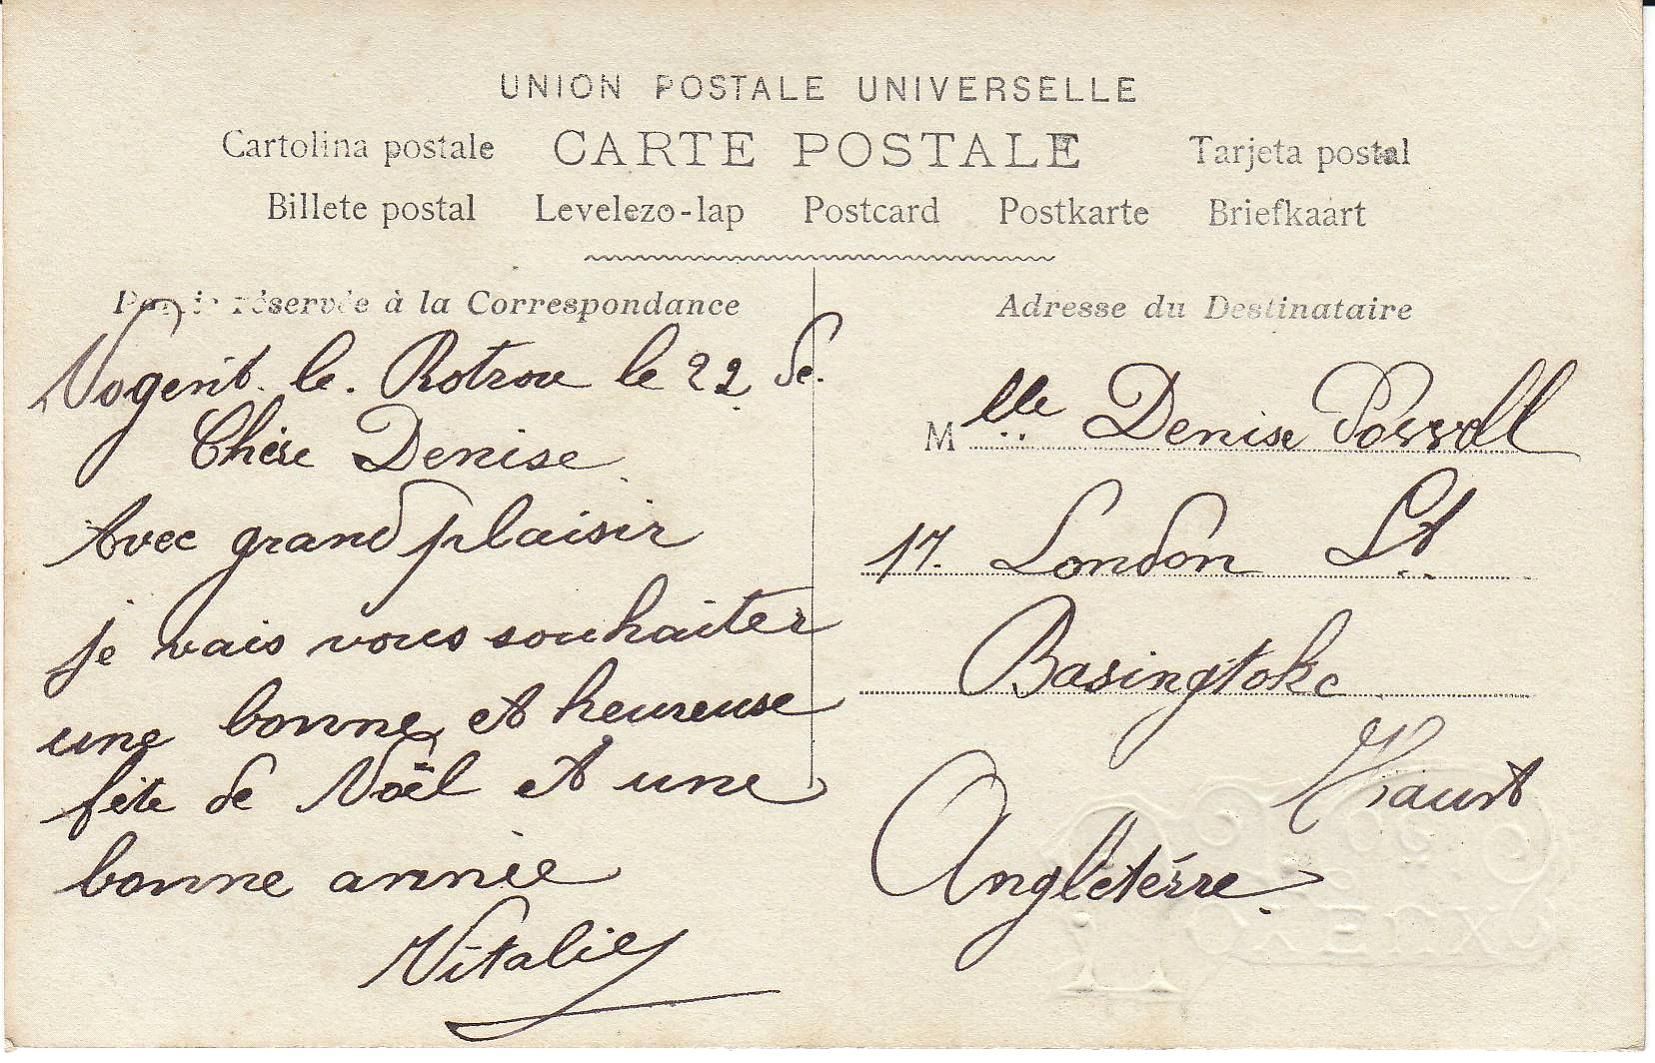 UNION POSTALE UNIVERSELLE
Cartolina postale CARTE POSTALE Tarjeta postal
Billete postal Levelezo-lap Postcard Postkarte Briefkaart
Partie réservée à la Correspondance
Nogent. le. Rotrou le 22 De.
Chère Denise
Avec grand plaisir
je vais vous souhaiter
une bonne et heureuse
fête de Noël et une
bonne année
Vitalie
Adresse du Destinataire
Mlle Denise
17. London St.
Basingtoke
Angletérre.